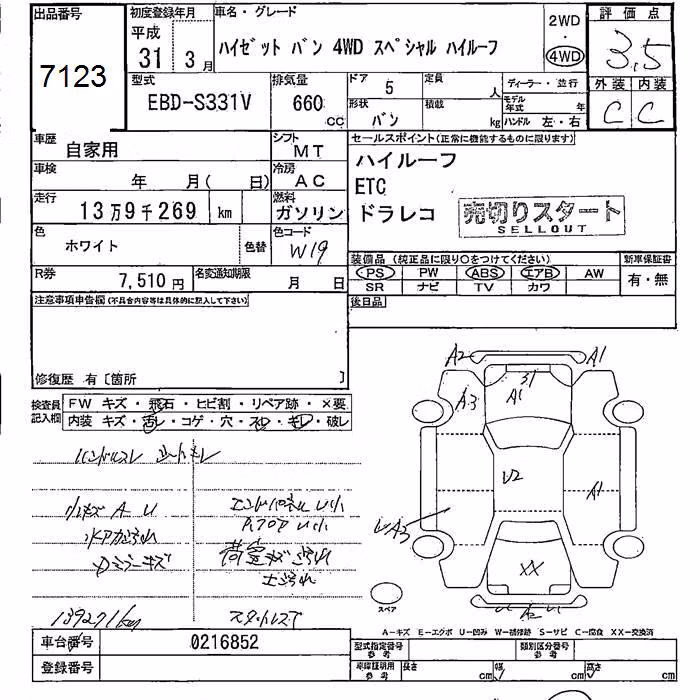 出品番号
7123
初度登録年月
平成
31年 3月
車名・グレード
ハイゼット バン 4WD スペシャル ハイルーフ
2WD
・
4WD
評価点
3.5
外装 内装
C C
型式
EBD-S331V
排気量
660 cc
ドア 5
形状 バン
定員 人
積載 kg
ディーラー・並行
モデル年式 年
ハンドル 左・右
車歴
自家用
シフト
MT
車検
年 月( 日)
冷房
AC
走行
13万9千269 km
燃料
ガソリン
色
ホワイト
色替
色コード
W19
R券
7,510円
名変通知期限
月 日
セールスポイント(正常に機能するものに限ります)
ハイルーフ
ETC
ドラレコ
売切りスタート
SELLOUT
装備品(純正品に限り○をつけてください)
新車保証書
PS PW ABS エアB AW
SR ナビ TV カワ
有・無
後日品
注意事項申告欄(不具合内容等は具体的に記入して下さい)
修復歴 有〔箇所 〕
検査員記入欄
FW キズ・飛石・ヒビ割・リペア跡・×要
内装 キズ・汚レ・コゲ・穴・スレ・キレ・破レ
ハンドルスレ シートキレ
小キズ A U
エンドパネル U小
A.フロア U小
水アカ汚れ
荷室キズ 汚れ
ミラーキズ
139271km
スタッドレス
A2
A1
A3
31
A1
U2
A1
UA3
XX
A2
スペア
A-キズ E-エクボ U-凹み W-補修跡 S-サビ C-腐食 XX-交換済
車台番号
0216852
登録番号
型式指定番号
参考
類別区分番号
参考
車庫証明用
参考
長さ cm 幅 cm 高さ cm